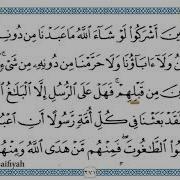 ـينَ أَشْرَكُوا۟ لَوْ شَآءَ ٱللَّهُ مَا عَبَدْنَا مِن دُونِـ
ـنُ وَلَآ ءَابَآؤُنَا وَلَا حَرَّمْنَا مِن دُونِهِۦ مِن شَىْءٍ
مِن قَبْلِهِمْ فَهَلْ عَلَى ٱلرُّسُلِ إِلَّا ٱلْبَلَـٰغُ ٱ
لَقَدْ بَعَثْنَا فِى كُلِّ أُمَّةٍ رَّسُولًا أَنِ ٱعْبُـ
ـوا۟ ٱلطَّـٰغُوتَ فَمِنْهُم مَّنْ هَدَى ٱللَّهُ وَمِنْهُم
aifiyah ٢٧١